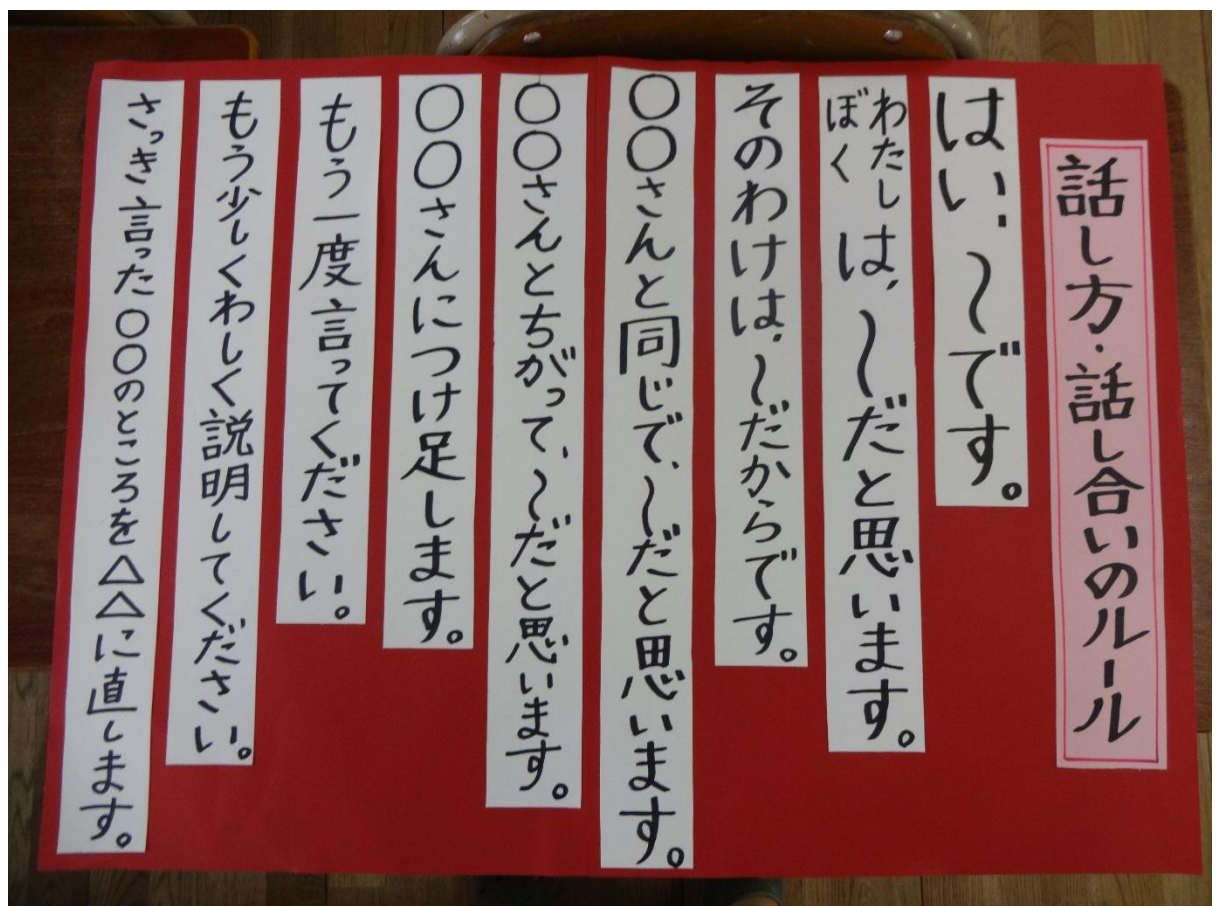 話し方・話し合いのルール
はい、〜です。
わたし
ぼく
は、〜だと思います。
そのわけは、〜だからです。
〇〇さんと同じで、〜だと思います。
〇〇さんとちがって、〜だと思います。
〇〇さんにつけ足します。
もう一度言ってください。
もう少しくわしく説明してください。
さっき言った〇〇のところを△△に直します。